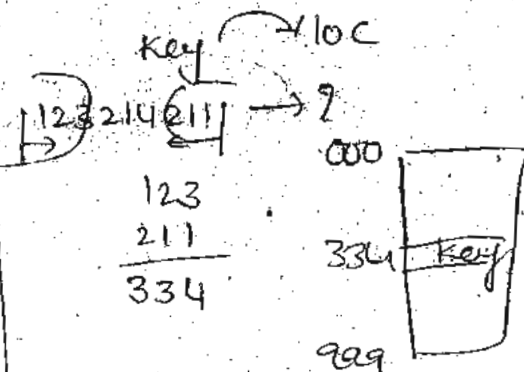 Key loc
123214211 → ?
123
211
334
000
334 Key
999